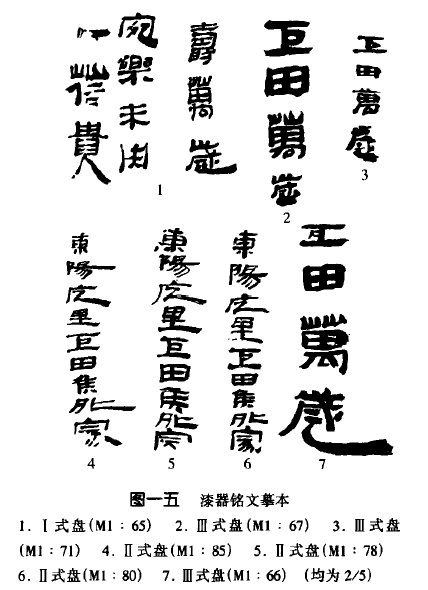 爵萬歲
宛樂未央
貴
1
巨田萬歲
2
巨田萬歲
3
東陽里巨田侯外家
4
東陽里巨田侯外家
5
東陽里巨田侯外家
6
巨田萬歲
7
图一五 漆器铭文摹本
1. Ⅰ式盘(M1：65) 2. Ⅲ式盘(M1：67) 3. Ⅲ式盘
(M1：71) 4. Ⅱ式盘(M1：85) 5. Ⅱ式盘(M1：78)
6. Ⅱ式盘(M1：80) 7. Ⅲ式盘(M1：66) (均为2/5)